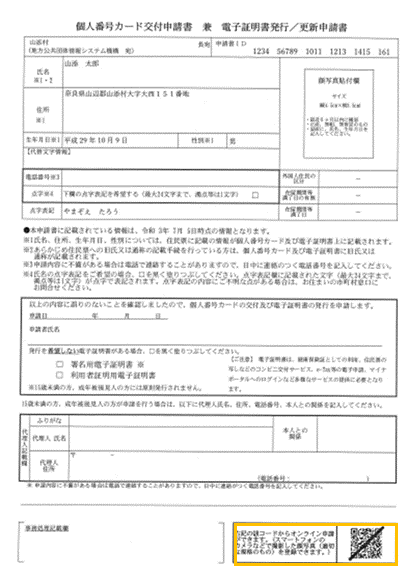 個人番号カード交付申請書 兼 電子証明書発行/更新申請書
山添村 長宛 申請書ID
(地方公共団体情報システム機構 宛) 1234 56789 1011 1213 1415 161
氏名
※1・2
山添 太郎
住所
※1
奈良県山辺郡山添村大字大西151番地
顔写真貼付欄
サイズ
生年月日※1 平成29年10月9日 性別※1 男
【代替文字情報】
電話番号※3
外国人住民の
区分
―
点字※4 下欄の点字表記を希望する(最大24文字まで、濁点等は1文字) □
在留期間等
満了日の有無
―
点字表記 やまぞえ たろう
在留期間等
満了日
―
●本申請書に記載されている情報は、令和 3年 7月 5日時点の情報となります。
※1氏名、住所、生年月日、性別については、住民票に記載の情報が個人番号カード及び電子証明書上に記載されます。
※2あらかじめ住民票への旧氏又は通称の記載手続を行っている方は、個人番号カード及び電子証明書に旧氏又は
通称が記載されます。
※3申請内容に不備がある場合は電話で連絡することがありますので、日中に連絡のつく電話番号を記入してください。
※4氏名の点字表記をご希望の場合、□を黒く塗りつぶしてください。点字表記欄に記載された文字(最大24文字まで、
濁点等は1文字)が点字で表記されます。点字表記の内容にご不明な点がある場合は、お住いの市町村窓口に
お問合せください。
以上の内容に誤りのないことを確認しましたので、個人番号カードの交付及び電子証明書の発行を申請します。
申請日 年 月 日
申請者氏名
発行を希望しない電子証明書がある場合、□を黒く塗りつぶしてください。
□ 署名用電子証明書 ※
□ 利用者証明用電子証明書
※15歳未満の方、成年被後見人の方には原則発行されません。
【ご注意】 電子証明書は、健康保険証としての利用、住民票の
写しなどのコンビニ交付サービス、e-Tax等の電子申請、マイナ
ポータルへのログインなど多様なサービスの提供に必要となり
ます。
15歳未満の方、成年被後見人の方が申請を行う場合は、以下に代理人氏名、住所、電話番号、本人との関係を記入してください。
代理人記載欄
ふりがな
代理人 氏名
本人との
関係
代理人
住所
〒 -
(電話番号: )
※ 申請内容に不備がある場合は電話で連絡することがありますので、日中に連絡がつく電話番号を記入してください。
事務処理記載欄
右記の該コードからオンライン申請
ができます。(スマートフォンの
カメラなどで撮影した顔写真(適切
な規格のもの)を登録できます。)